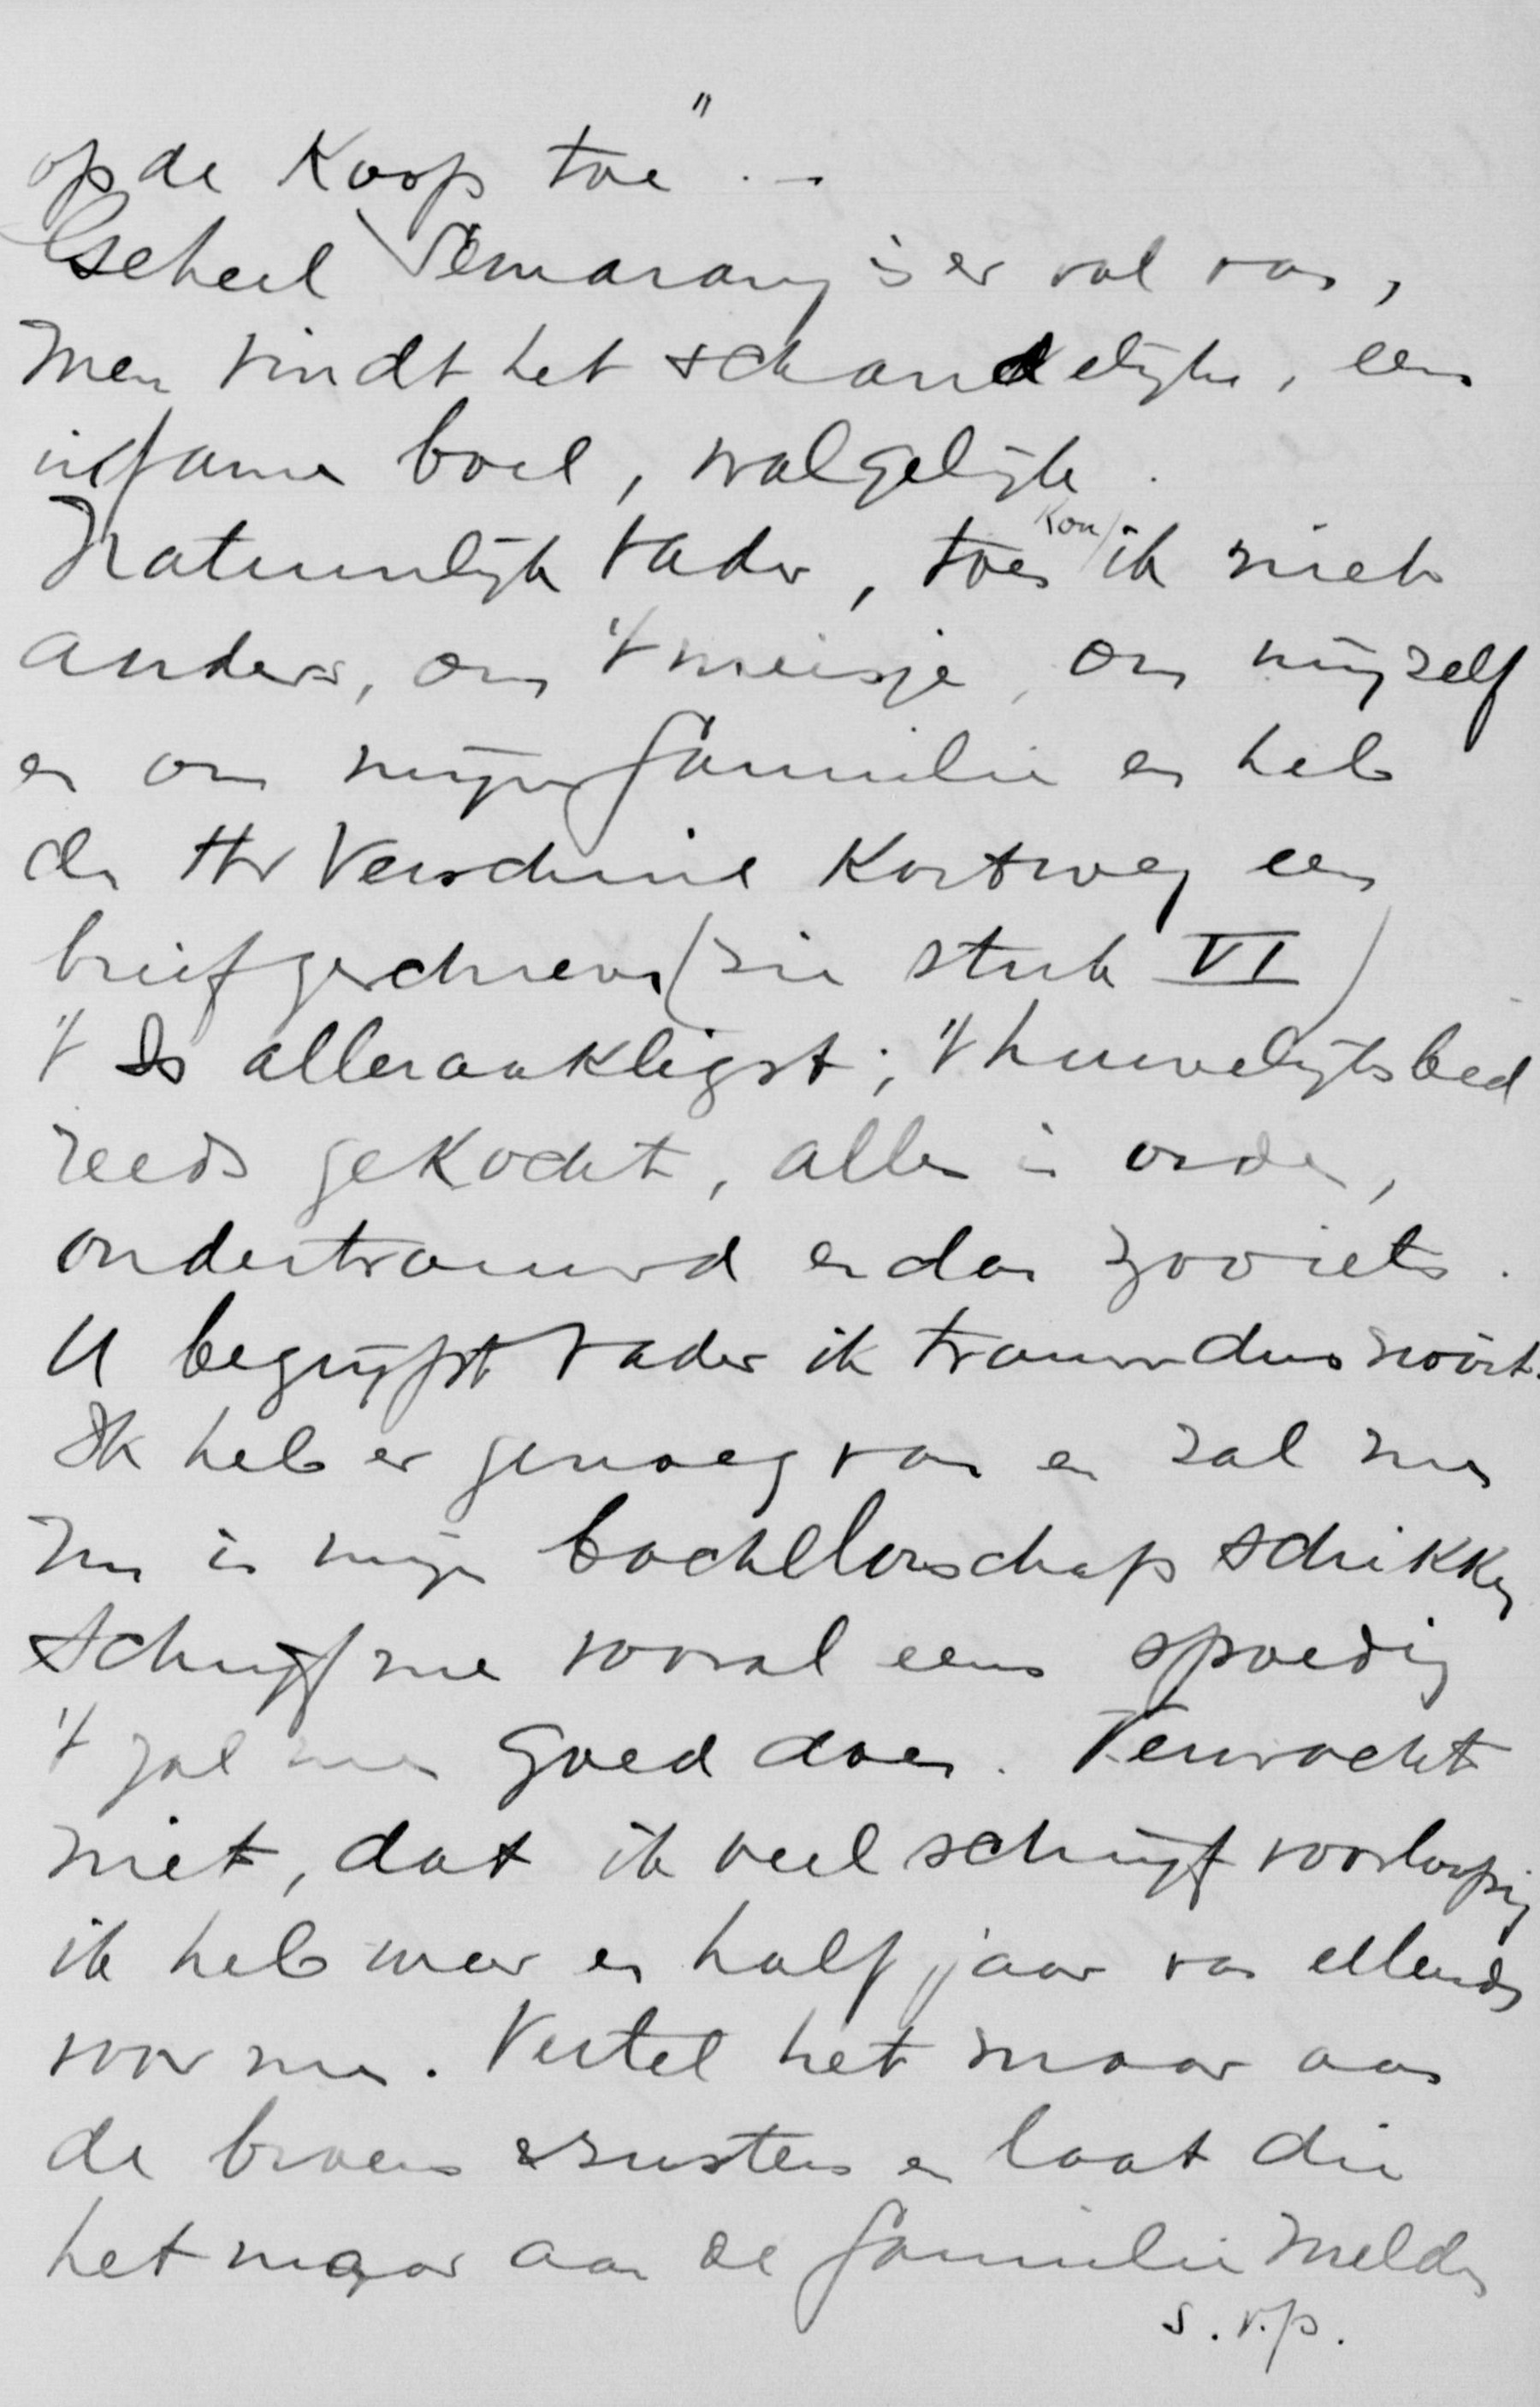 op de Koop toe" . –
Geheel Semarang is er vol van,
men vindt het schandelijk, een
infame boel, walgelijk.
Natuurlijk Vader, toen kon ik niet
anders, om 't meisje, om mijzelf
en om mijn familie en heb
den Hr Verschuire Kortweg een
brief geschreven (zie stuk VI)
't Is allerakligst; 't huwelijksbed
reeds geKocht, alles in orde,
ondertrouwd en dan zooiets.
U begrijpt Vader ik trouw dus nooit.
Ik heb er genoeg van en zal me
nu in mijn bachellorschap schikken
Schrijf me vooral eens spoedig
't zal me goed doen. Verwacht
niet, dat ik veel schrijf voorloopig
ik heb weer een half jaar van ellende
voor me. Vertel het maar aan
de broers & zusters en laat die
het maar aan de familie melden
s.v.p.